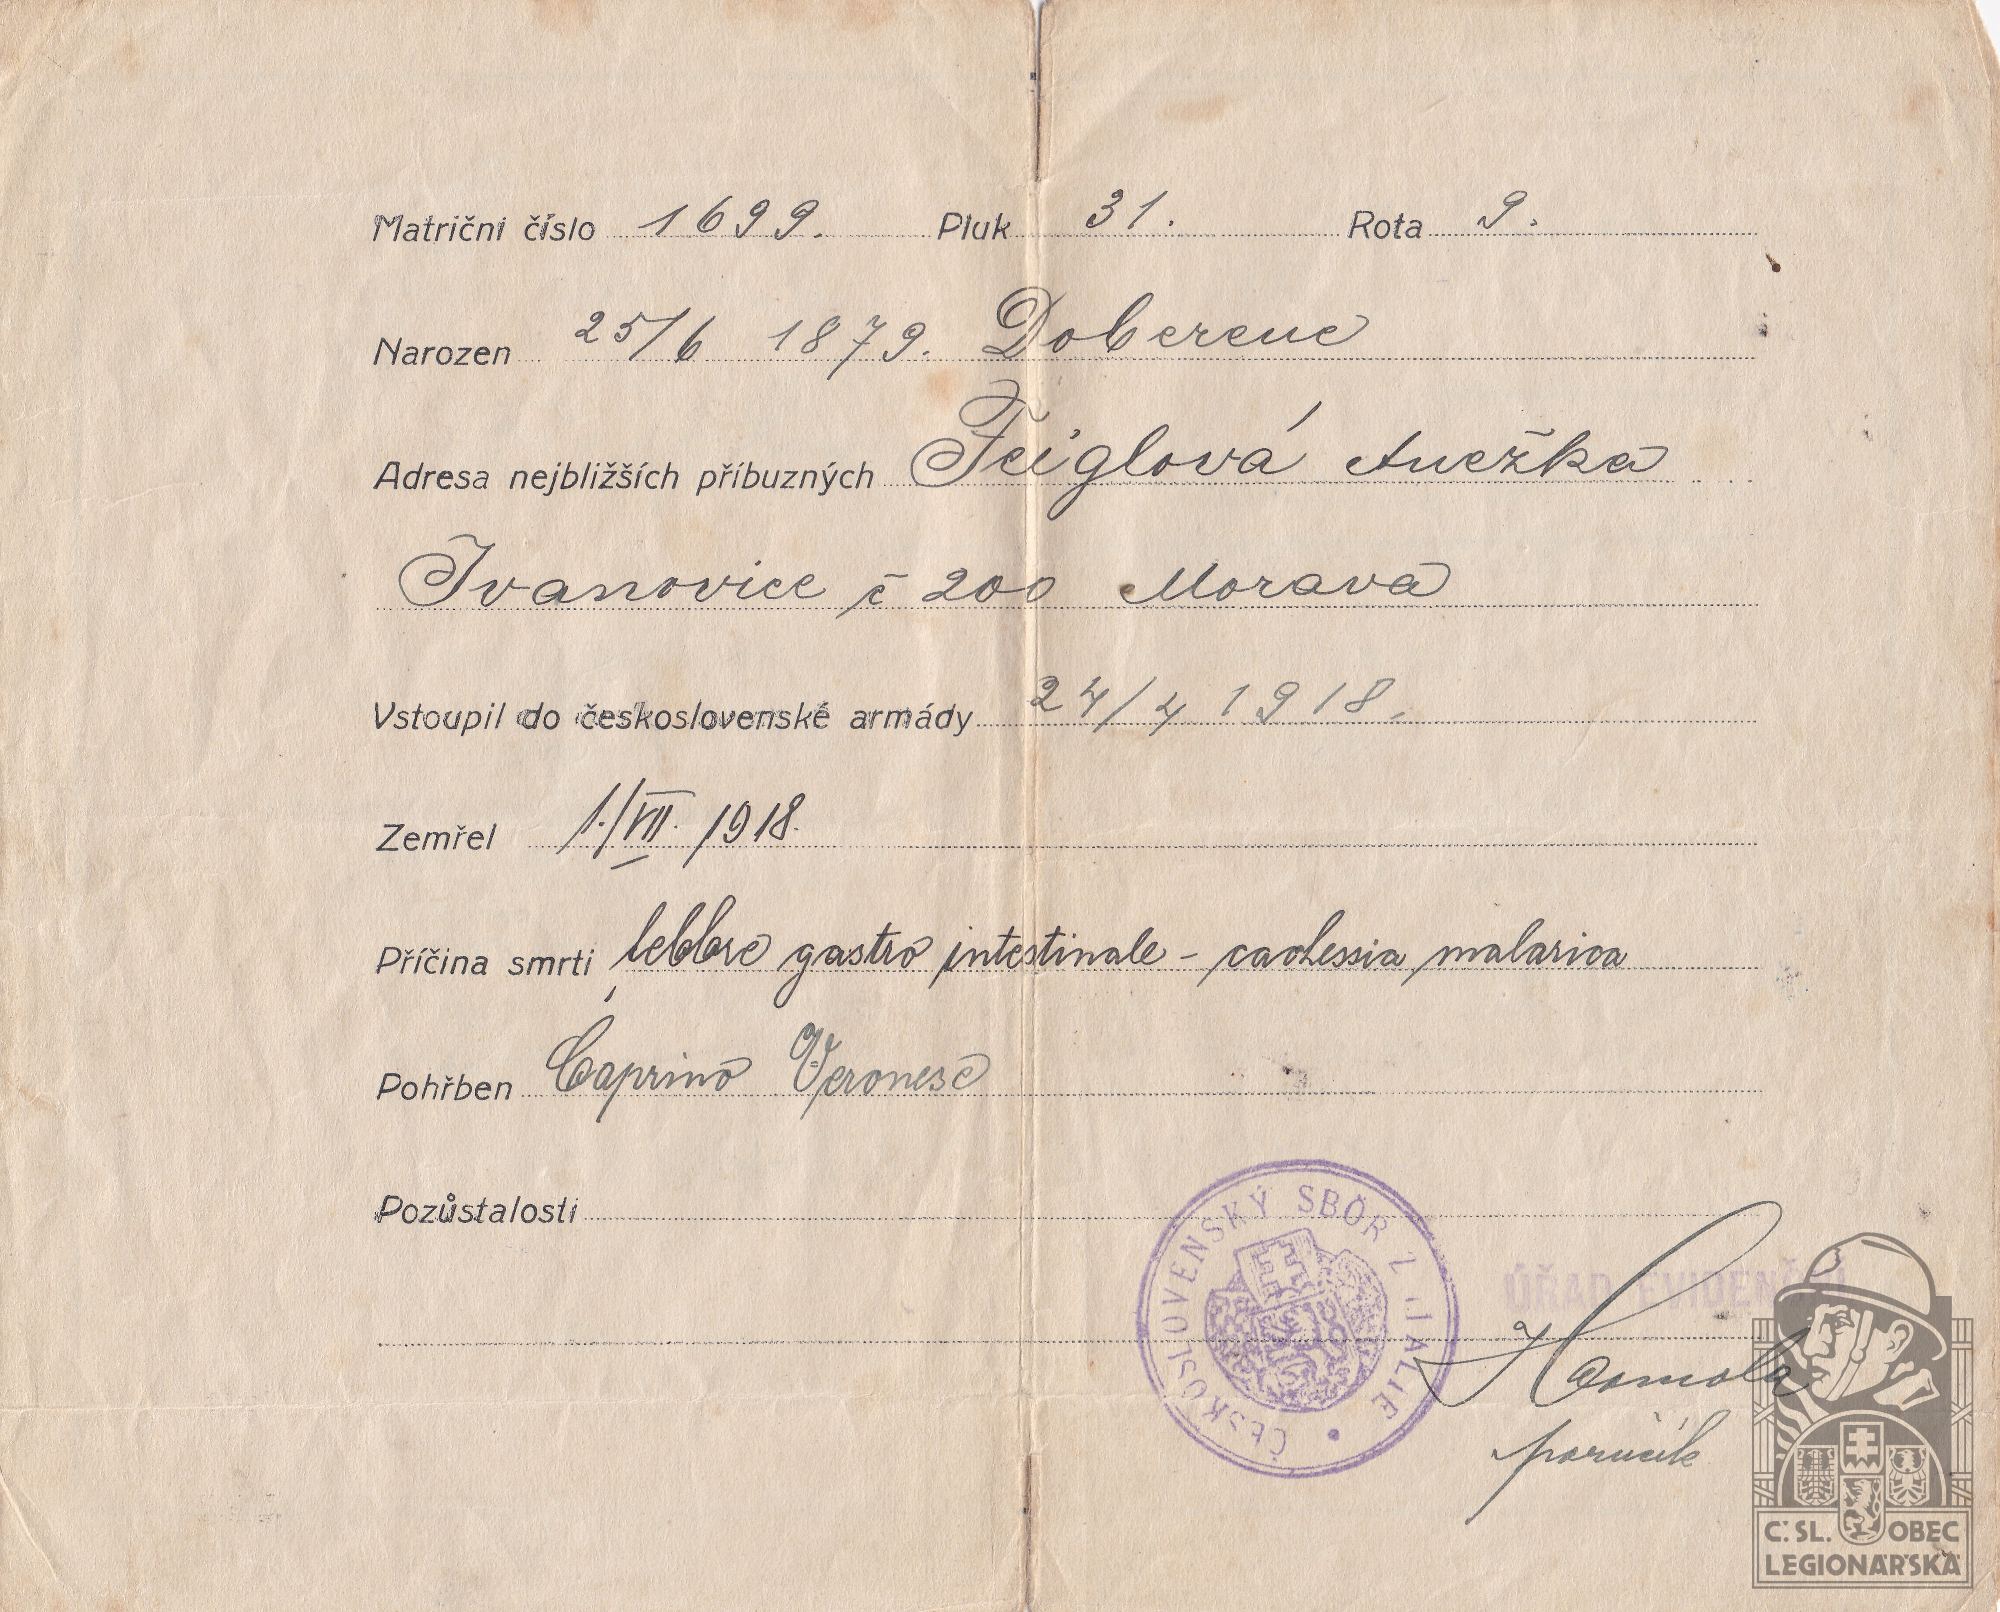 Matriční číslo 1699. Pluk 31. Rota 9.
Narozen 25/6 1879. Doberene
Adresa nejbližších příbuzných Feiglová Anežka
Ivanovice č 200 Morava
Vstoupil do československé armády 24/4 1918.
Zemřel 1./VII. 1918.
Příčina smrti febbre gastro intestinale - cachessia malarica
Pohřben Caprino Veronese
Pozůstalosti
ČESKOSLOVENSKÝ SBOR Z ITALIE
ÚŘAD EVIDENČNÍ
poručík
Č. SL. OBEC
LEGIONÁŘSKÁ